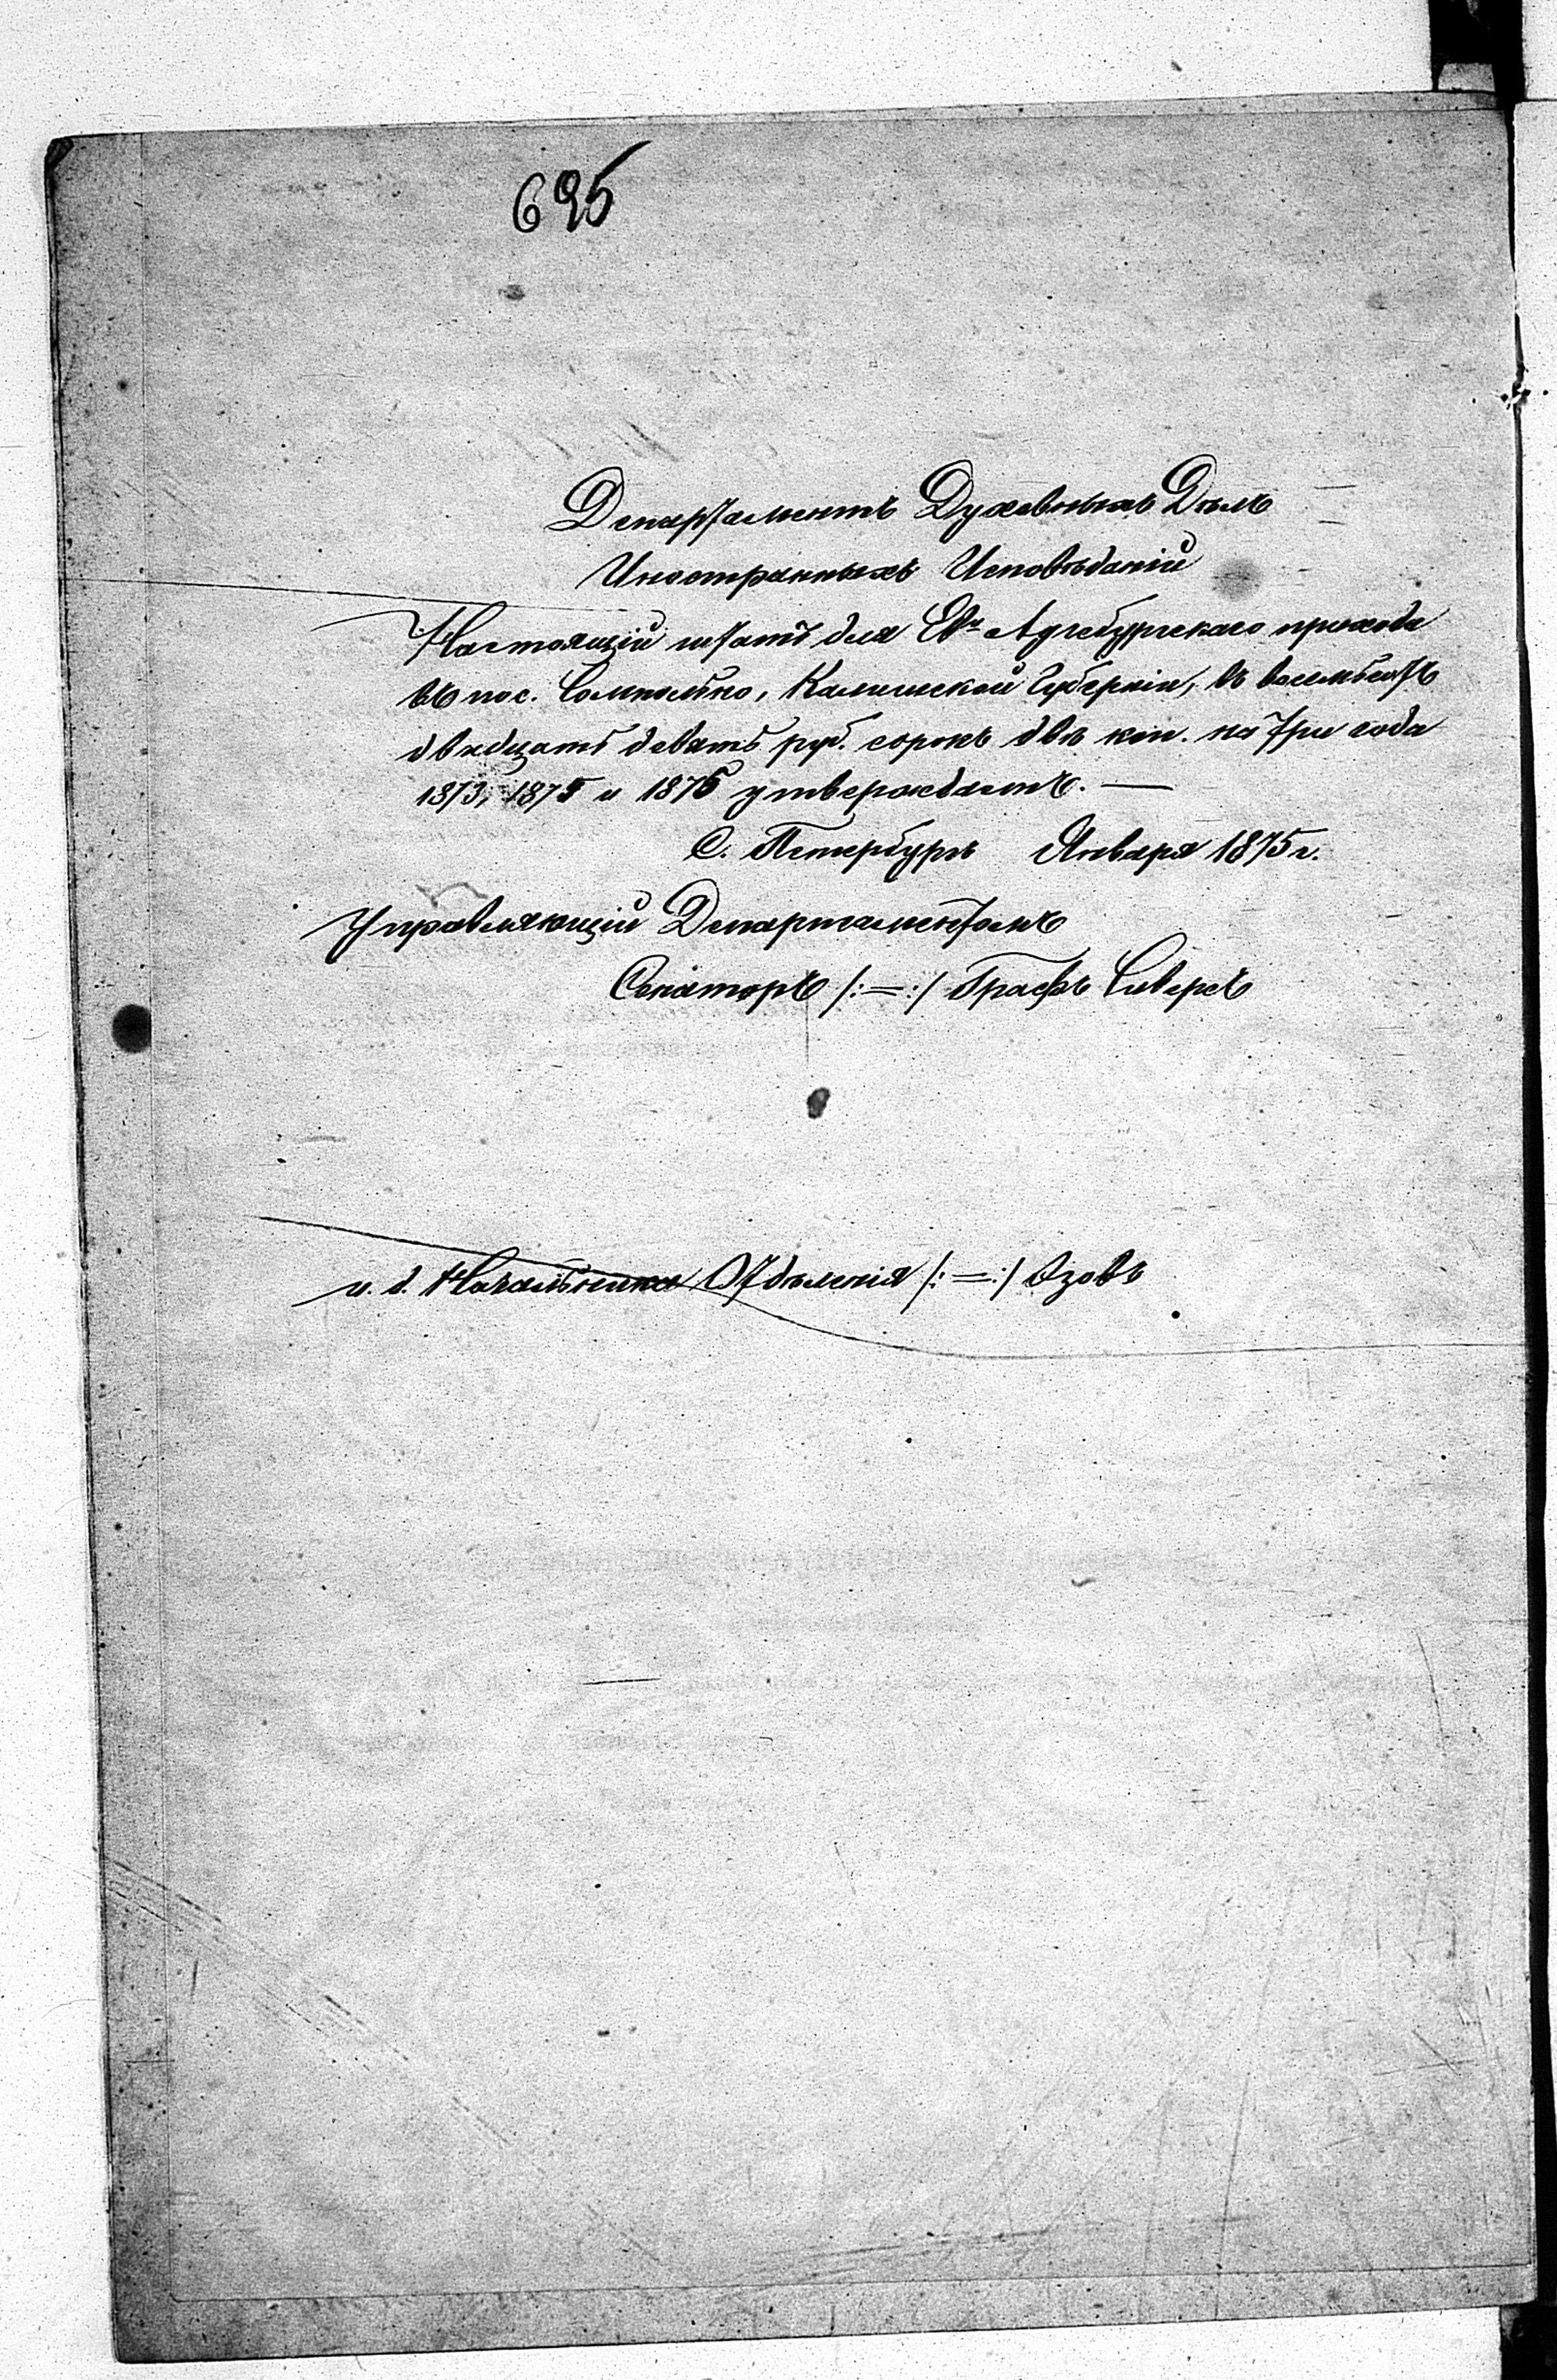 695
Департаментъ Духовныхъ Дѣлъ
Иностранныхъ Исповѣданій
Настоящій штатъ для Ев. Аугсбургскаго прихода
въ пос. Сомпольно, Калишской Губерніи, въ восемьсотъ
двадцать девять руб. сорокъ двѣ коп. на три года
1873, 1875 и 1876 утверждаетъ. —
С. Петербургъ Января 1875 г.
Управляющій Департаментомъ
Сенаторъ /:=:/ Графъ Сиверсъ
и. д. Начальника Отдѣленія /:=:/ Озовъ